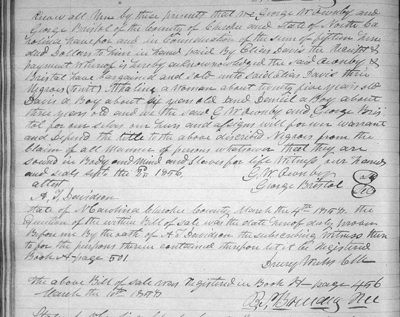 Know all Men by these presents that we George W. Bunby and
George Bristol of the County of Cherokee and State of North Ca
rolina have for and in Consideration of the sum of fifteen hun
dred Dollars to him in hand paid by Elias Davis the Receipt &
payment whereof is hereby acknowledged the said Bunby &
Bristol have bargained and sold unto said Elias Davis three
Negroes (to wit) a Woman about twenty five years old
Davis a Boy about six years old and Daniel a Boy about
three years old and we the said G W Bunby and George Bris
tol for our selves our heirs and assigns will forever warrant
and defend the title to the above described Negroes from the
Claim of all Manner of persons whatsoever that they are
sound in Body and Mind and Slaves for life Witness our hands
and Seals Sept the 1856
G. W. Bunby
George Bristol
attest
A. T. Davidson
State of N Carolina Cherokee County March the the
Execution of the within Bill of Sale was this date duly proven
Before me By the oath of A T Davidson the subscribing Witness there
to for the purposes therein contained therefore let it be registered
Book A page 501
Drury Weeks Clk
the above Bill of sale was registered in Book H page 456
March the 10th